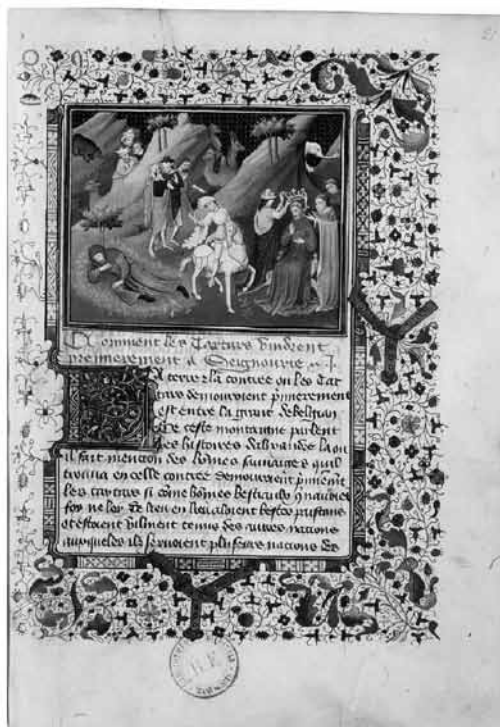 Comment les Tartars vindrent
premierement a Seignourie
A terre et la contree ou les Tar
tars demouroient premierement
est entre la grant de belgian
De ceste montaigne parlent
les histoires dalixandre la ou
il fait mencion des homes sauuaiges quil
trouua en celle contree demouroient
les tartars si come homes bestiaulx
foy ne loy de lieu en lieu aloient bestes
et estoient vilment tenus des autres nacions
ausqueles ilz seruoient plusieurs nacions des